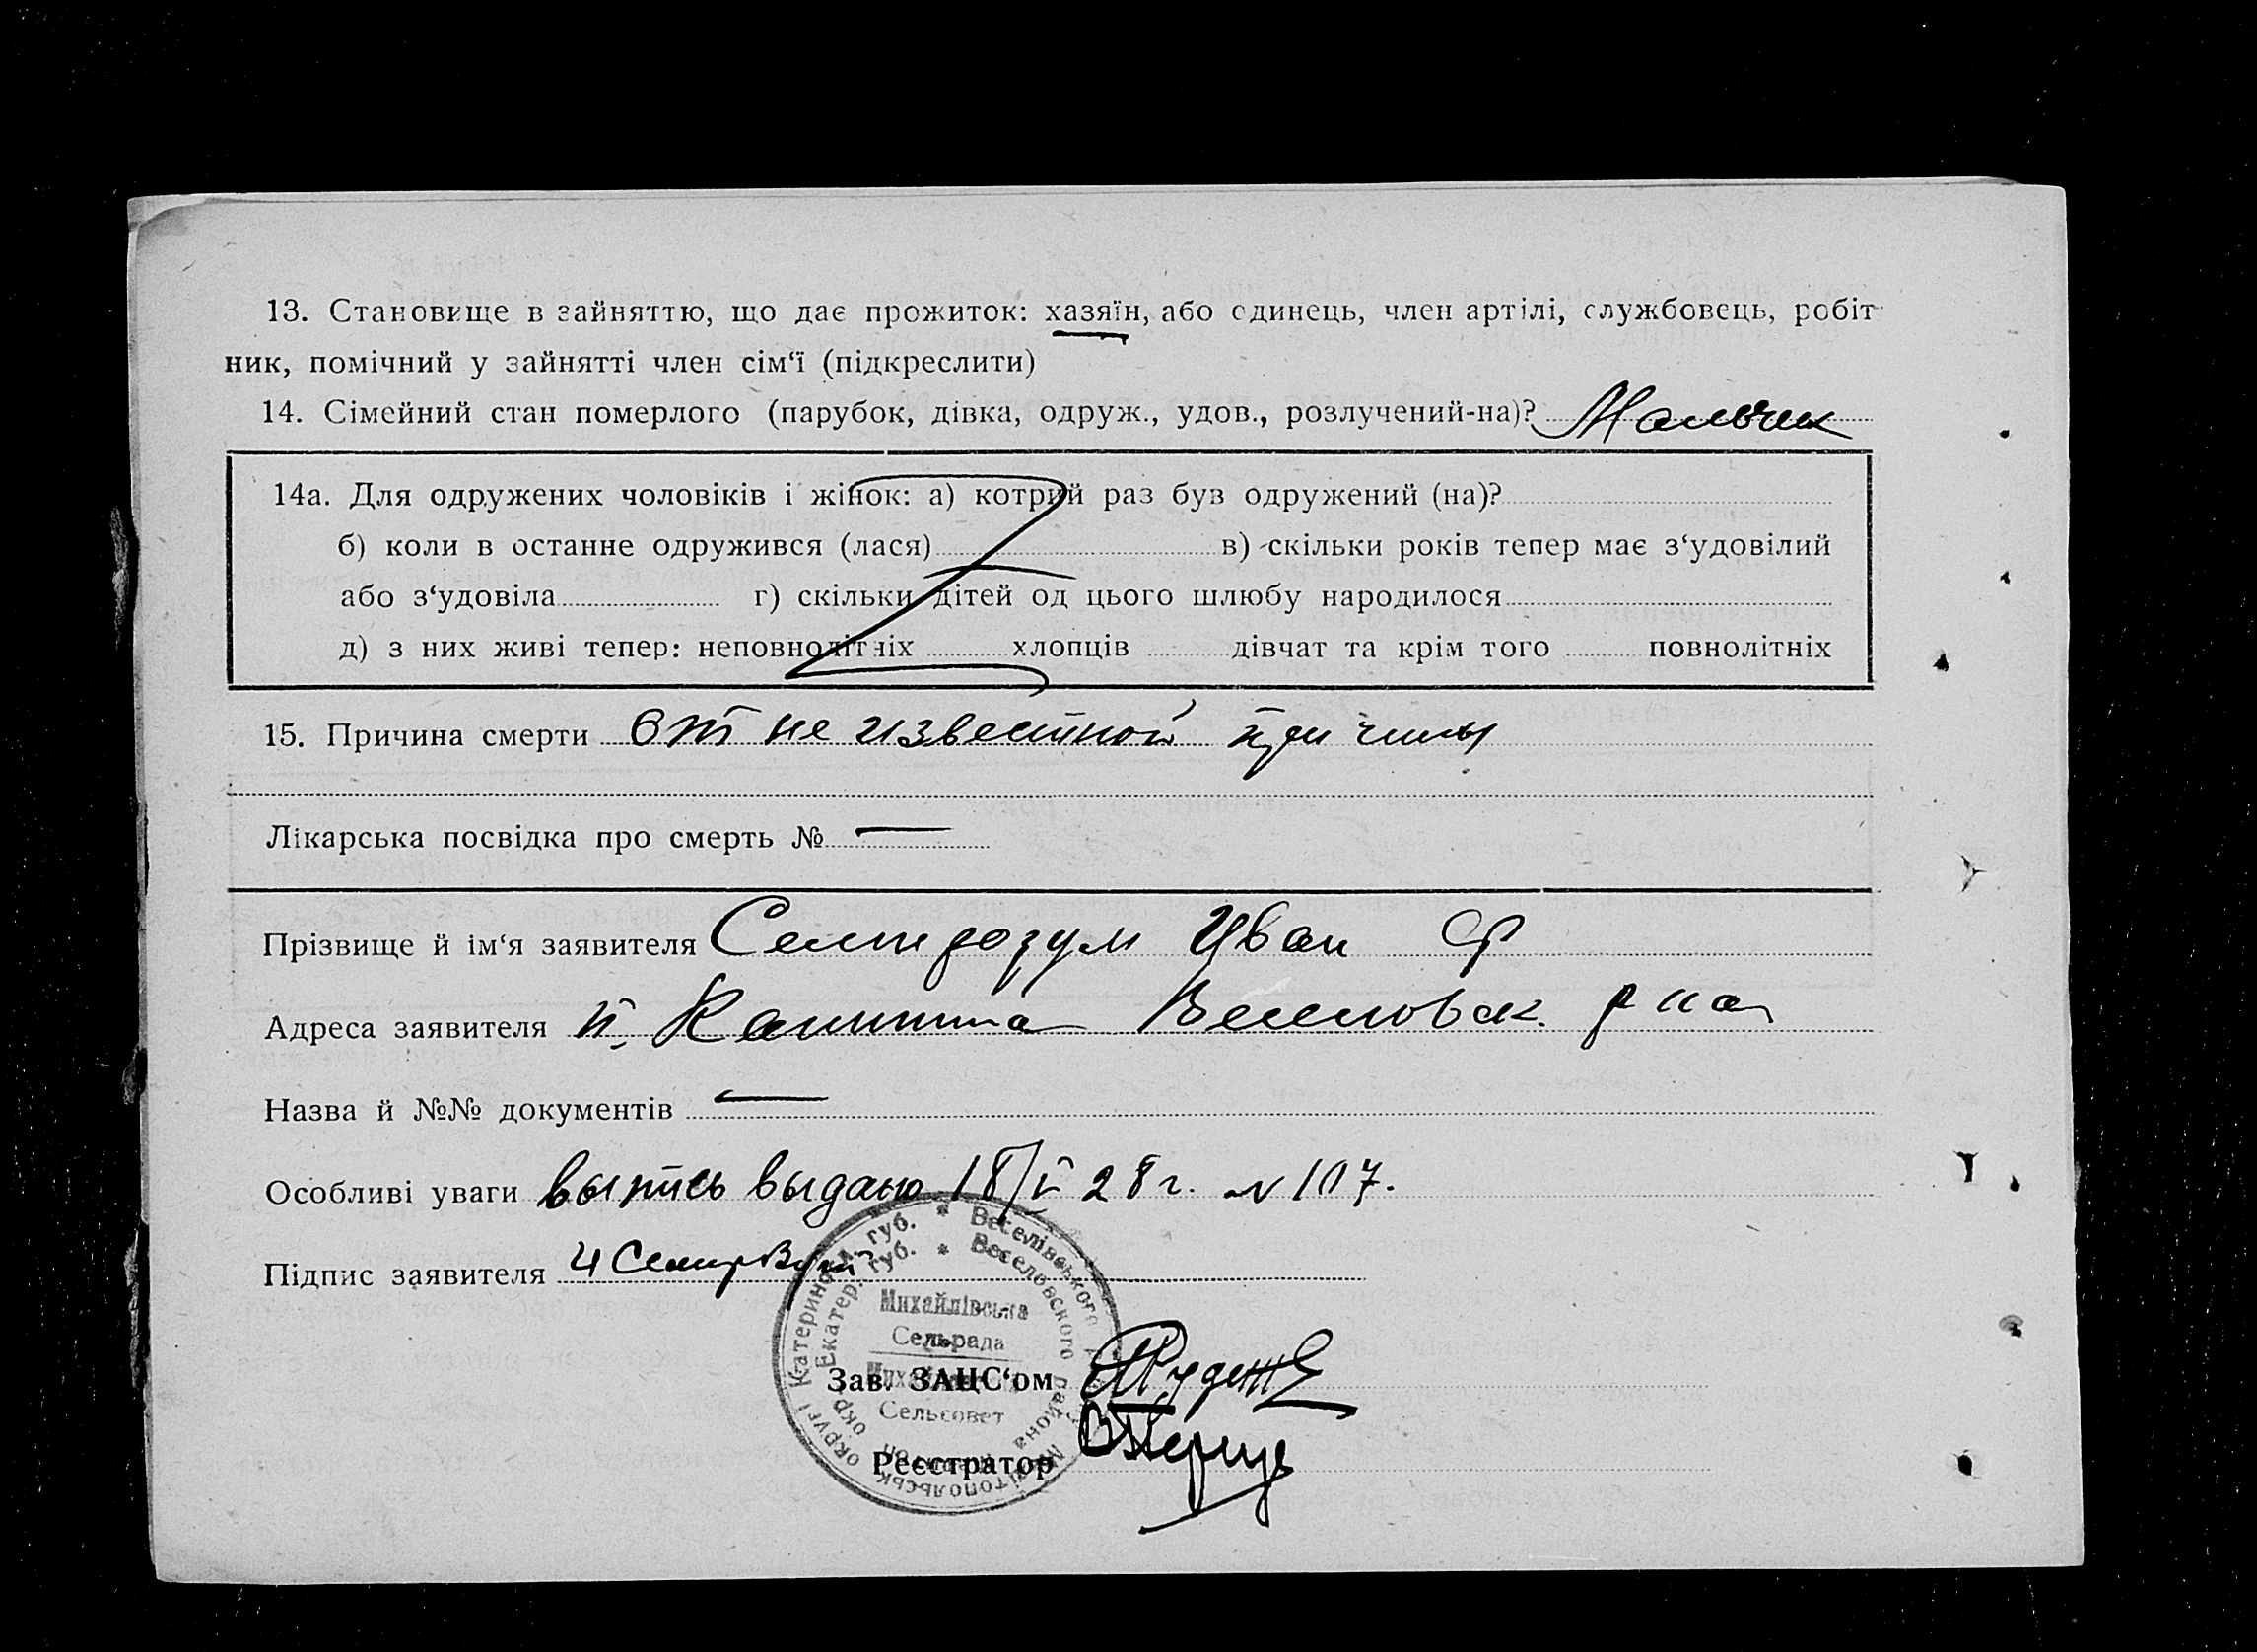 13. Становище в зайняттю, що дає прожиток: хазяїн, або одинець, член артілі, службовець, робіт-
ник, помічний у зайнятті член сім‘ї (підкреслити)
14. Сімейний стан померлого (парубок, дівка, одруж., удов., розлучений-на)? Мальчик
14а. Для одружених чоловіків і жінок: а) котрий раз був одружений (на)?
б) коли в останне одружився (лася) в) скільки років тепер має з‘удовілий
або з‘удовіла г) скільки дітей од цього шлюбу народилося
д) з них живі тепер: неповнолітніх хлопців дівчат та крім того повнолітніх
15. Причина смерти от не известной причины
Лікарська посвідка про смерть № —
Прізвище й ім‘я заявителя Иван Ф
Адреса заявителя п. Веселовск. р на
Назва й №№ документів —
Особливі уваги выпись выдано 18/V 28 г. № 107.
Підпис заявителя
Катеринослав. губ. * Веселівського району Мелітопольськ округі
Екатер. губ. * Веселовского района окр.
Михайлівська
Сельрада
Сельсовет
Зав. ЗАЦС‘ом
Реєстратор